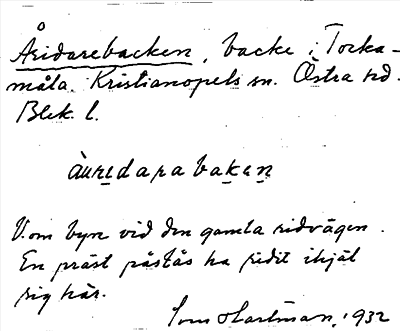 Åridarebacken, backe i Torka-
måla. Kristianopels sn. Östra hd.
Blek. l.
àuridarabakan
V. om byn vid den gamla ridvägen.
En präst påstås ha ridit ihjäl
sig här.
Hartman, 1932